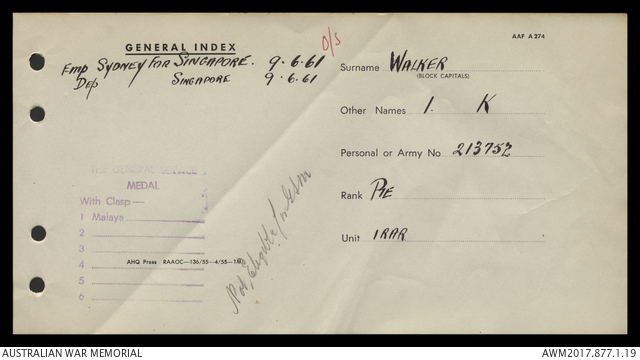 AAF A274
GENERAL INDEX
O/S
Emp SYDNEY FOR SINGAPORE. 9.6.61
Dep SINGAPORE 9.6.61
Surname WALKER
(BLOCK CAPITALS)
Other Names I. K
Personal or Army No 213752
Rank PTE
Unit 1RAR
THE GENERAL SERVICE
MEDAL
With Clasp—
1 Malaya
2
3
4
5
6
AHQ Press RAAOC—136/55—4/55—
Not Eligible for GSM
AUSTRALIAN WAR MEMORIAL
AWM2017.877.1.19